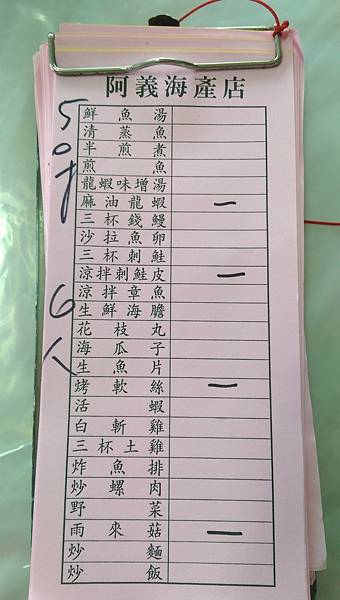 阿義海產店
鮮魚湯
清蒸魚
半煎煮
煎魚
龍蝦味增湯
麻油龍蝦 一
三杯錢鰻
沙拉魚卵
三杯刺鮭
涼拌刺鮭皮 一
涼拌章魚
生鮮海膽
花枝丸
海瓜子
生魚片
烤軟絲 一
活蝦
白斬雞
三杯土雞
炸魚排
炒螺肉
野菜
雨來菇 一
炒麵
炒飯
6人